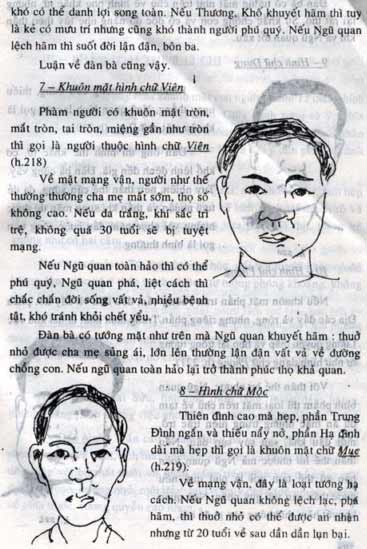 khó có thể danh lợi song toàn. Nếu Thương, Khố khuyết hãm thì tuy
là kẻ có mưu trí nhưng cũng khó thành người phú quý. Nếu Ngũ Quan
lệch hãm thì suốt đời lận đận, bôn ba.
Luận về đàn bà cũng vậy.
7 – Khuôn mặt hình chữ Viên
Phàm người có khuôn mặt tròn,
mắt tròn, tai tròn, miệng gần như tròn
thì gọi là người thuộc hình chữ Viên
(h.218)
Về mặt mạng vận, người như thế
thường thường cha mẹ mất sớm, thọ số
không cao. Nếu da trắng, khí sắc trì
trệ, không quá 30 tuổi sẽ bị tuyệt
mạng.
Nếu Ngũ quan toàn hảo thì có thể
phú quý, Ngũ quan phá, liệt cách thì
chắc chắn đời sống vất vả, nhiều bệnh
tật, khó tránh khỏi chết yểu.
Đàn bà có tướng mặt như trên mà Ngũ quan khuyết hãm : thuở
nhỏ được cha mẹ sủng ái, lớn lên thường lận đận vất vả về đường
chồng con. Nếu ngũ quan toàn hảo lại trở thành phúc thọ khả quan.
8 – Hình chữ Mộc
Thiên đình cao mà hẹp, phần Trung
Đình ngắn và thiếu nẩy nở, phần Hạ đình
dài mà hẹp thì gọi là khuôn mặt chữ Mục
(h.219).
Về mạng vận, đây là loại tướng hạ
cách. Nếu Ngũ Quan không lệch lạc, phá
hãm, thì thuở nhỏ có thể được an nhàn
nhưng từ 20 tuổi về sau dần dần lụn bại.